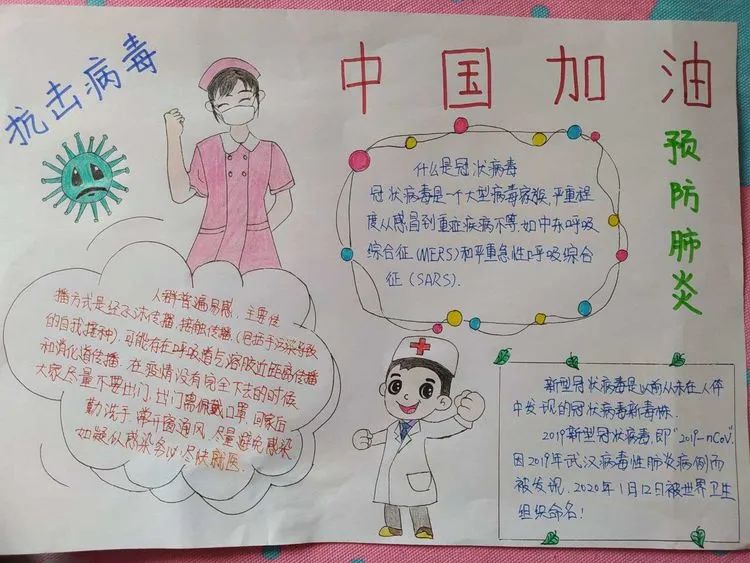 抗击病毒
中国加油
预防肺炎
什么是冠状病毒
冠状病毒是一个大型病毒家族,严重程
度从感冒到重症疾病不等,如中东呼吸
综合征(MERS)和严重急性呼吸综合
征(SARS).
人群普遍易感,主要传
播方式是经飞沫传播,接触传播,(包括手污染导致
的自我接种),可能存在呼吸道气溶胶近距离传播
和消化道传播.在疫情没有完全下去的时候
大家尽量不要出门,出门需佩戴口罩,回家后
勤洗手,常开窗通风,尽量避免感染
如疑似感染务必尽快就医.
新型冠状病毒是以前从未在人体
中发现的冠状病毒新毒株.
2019新型冠状病毒,即"2019-nCoV".
因2019年武汉病毒性肺炎病例而
被发现,2020年1月12日被世界卫生
组织命名!